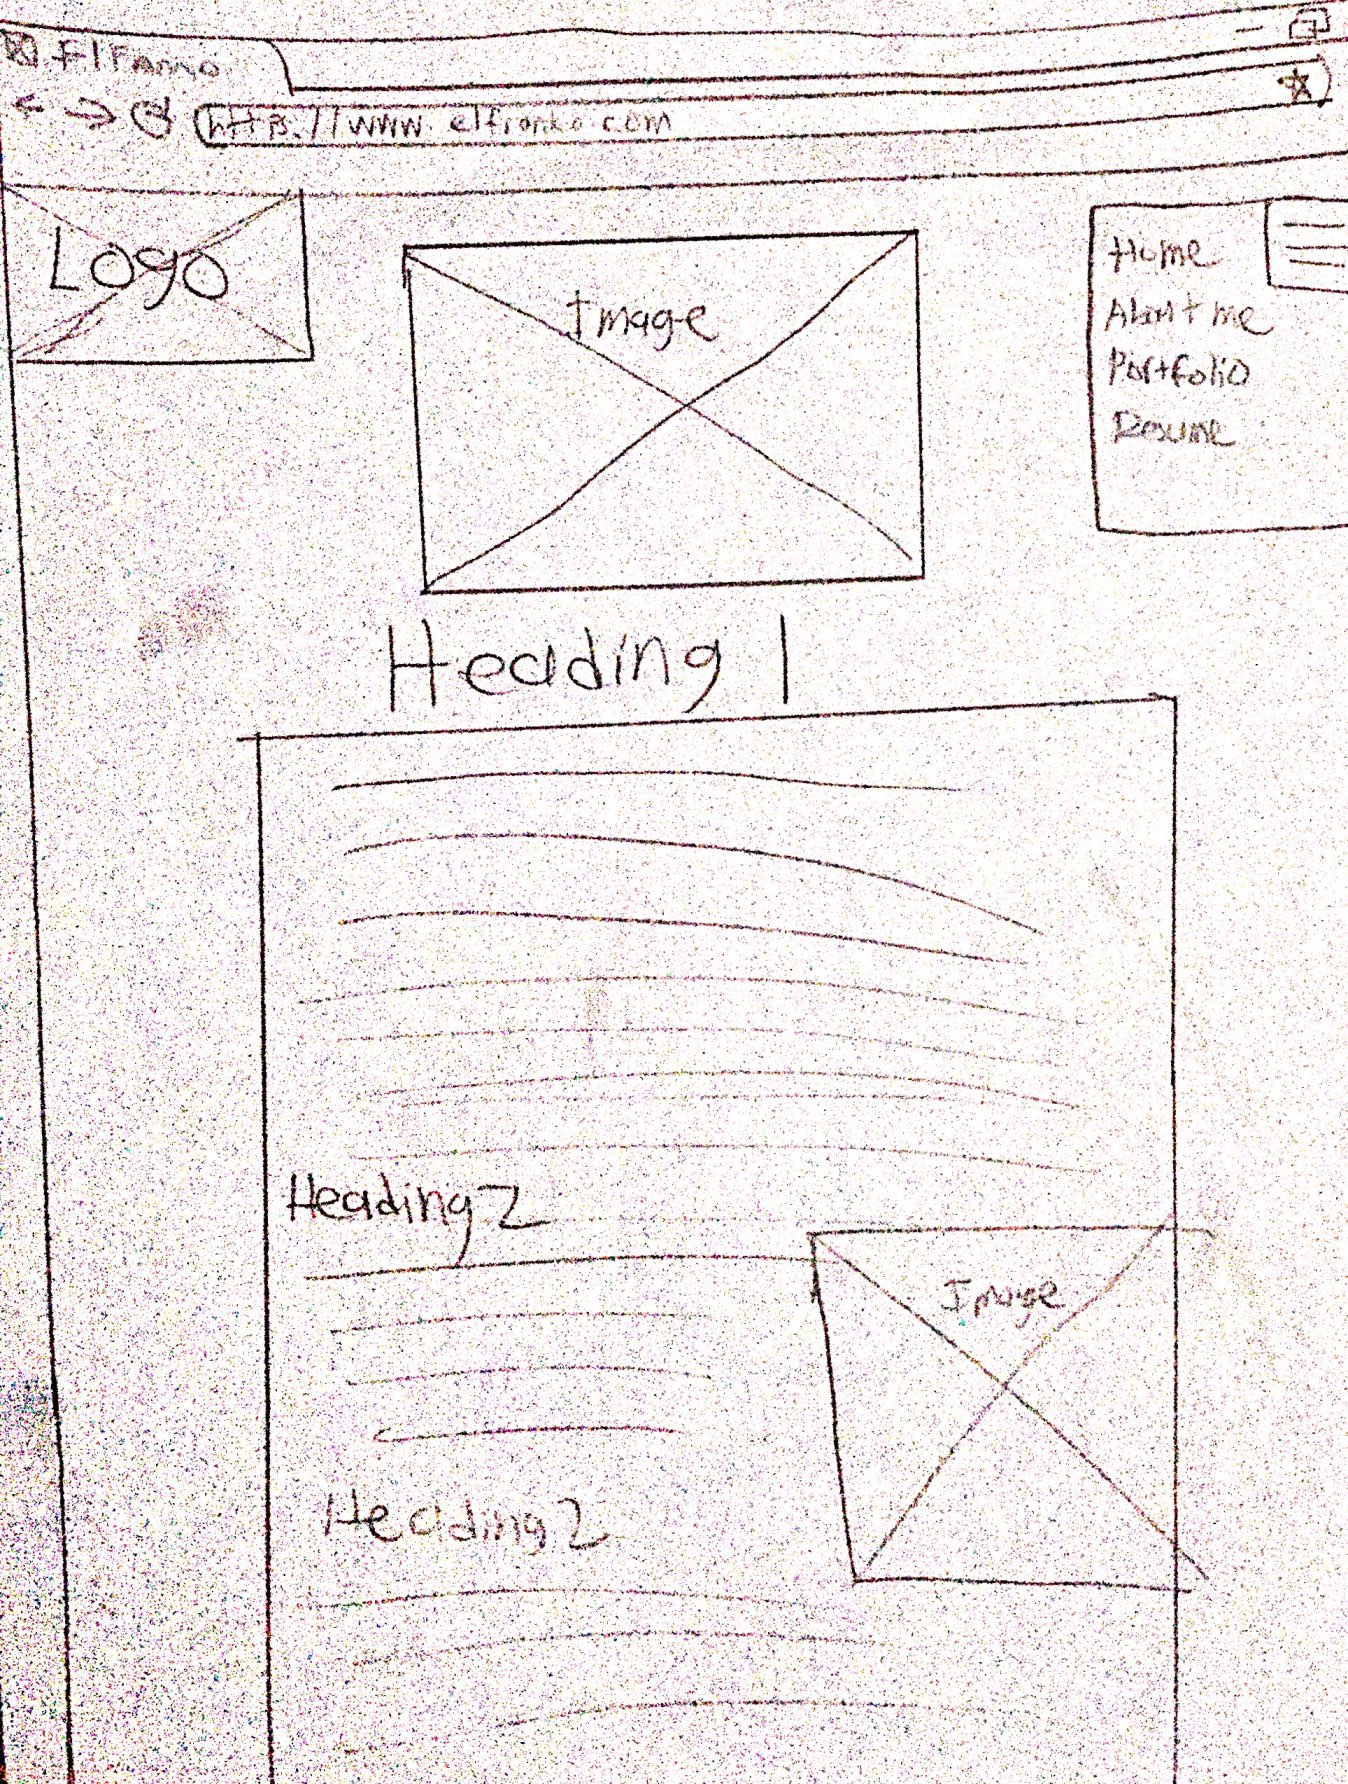 https://www.elfranko.com
Logo
Image
Home
About me
Portfolio
Resume
Heading 1
Heading 2
Image
Heading 2